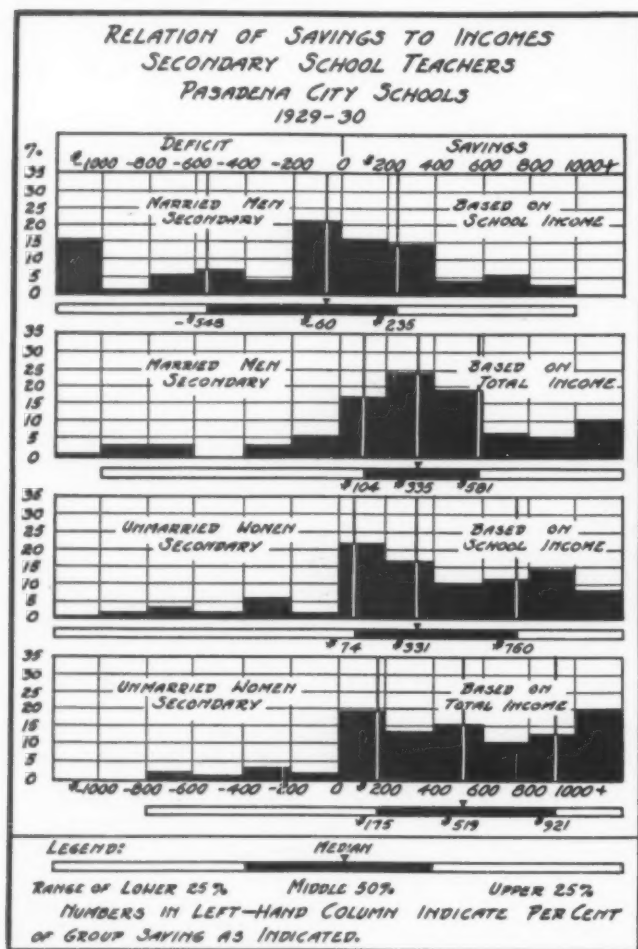 RELATION OF SAVINGS TO INCOMES
SECONDARY SCHOOL TEACHERS
PASADENA CITY SCHOOLS
1929-30
DEFICIT SAVINGS
% $-1000 -800 -600 -400 -200 0 $200 400 600 800 1000+
35
30
25
20
15
10
5
0
MARRIED MEN
SECONDARY
BASED ON
SCHOOL INCOME
-$548 $-60 $235
35
30
25
20
15
10
5
0
MARRIED MEN
SECONDARY
BASED ON
TOTAL INCOME
$104 $335 $581
35
30
25
20
15
10
5
0
UNMARRIED WOMEN
SECONDARY
BASED ON
SCHOOL INCOME
$74 $331 $760
35
30
25
20
15
10
5
0
UNMARRIED WOMEN
SECONDARY
BASED ON
TOTAL INCOME
$-1000 -800 -600 -400 -200 0 $200 400 600 800 1000+
$175 $519 $921
LEGEND: MEDIAN
RANGE OF LOWER 25% MIDDLE 50% UPPER 25%
NUMBERS IN LEFT-HAND COLUMN INDICATE PER CENT
OF GROUP SAVING AS INDICATED.